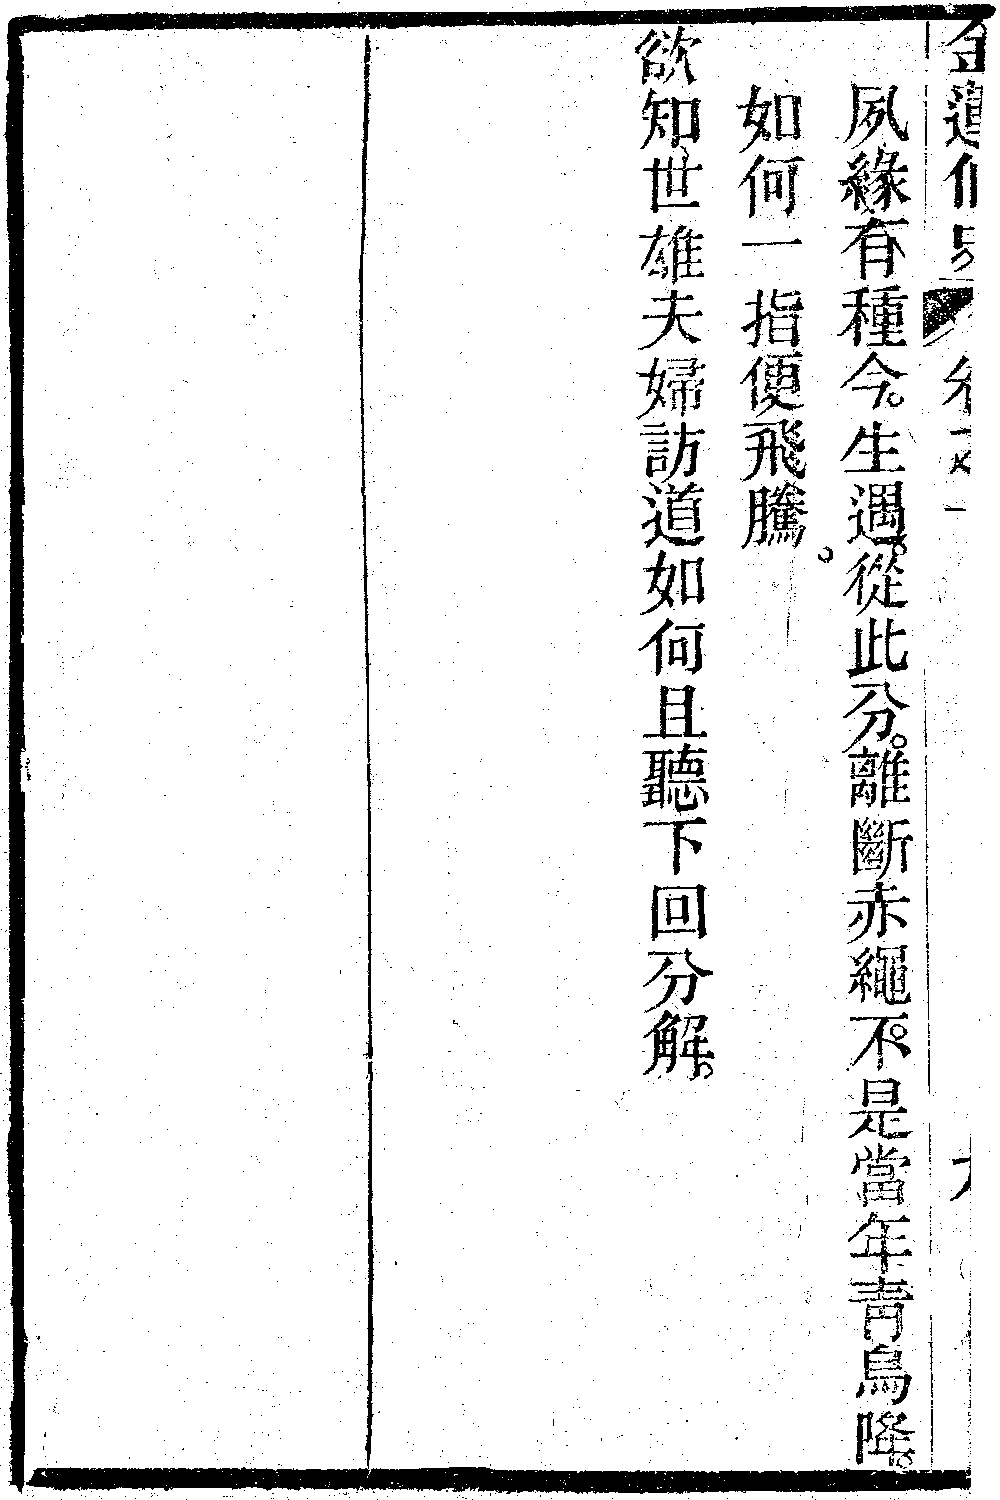 夙緣有種今。生遇。從此分。離斷赤繩。不是當年靑鳥降。
如何一指便飛騰。
欲知世雄夫婦訪道如何且聽下回分解。